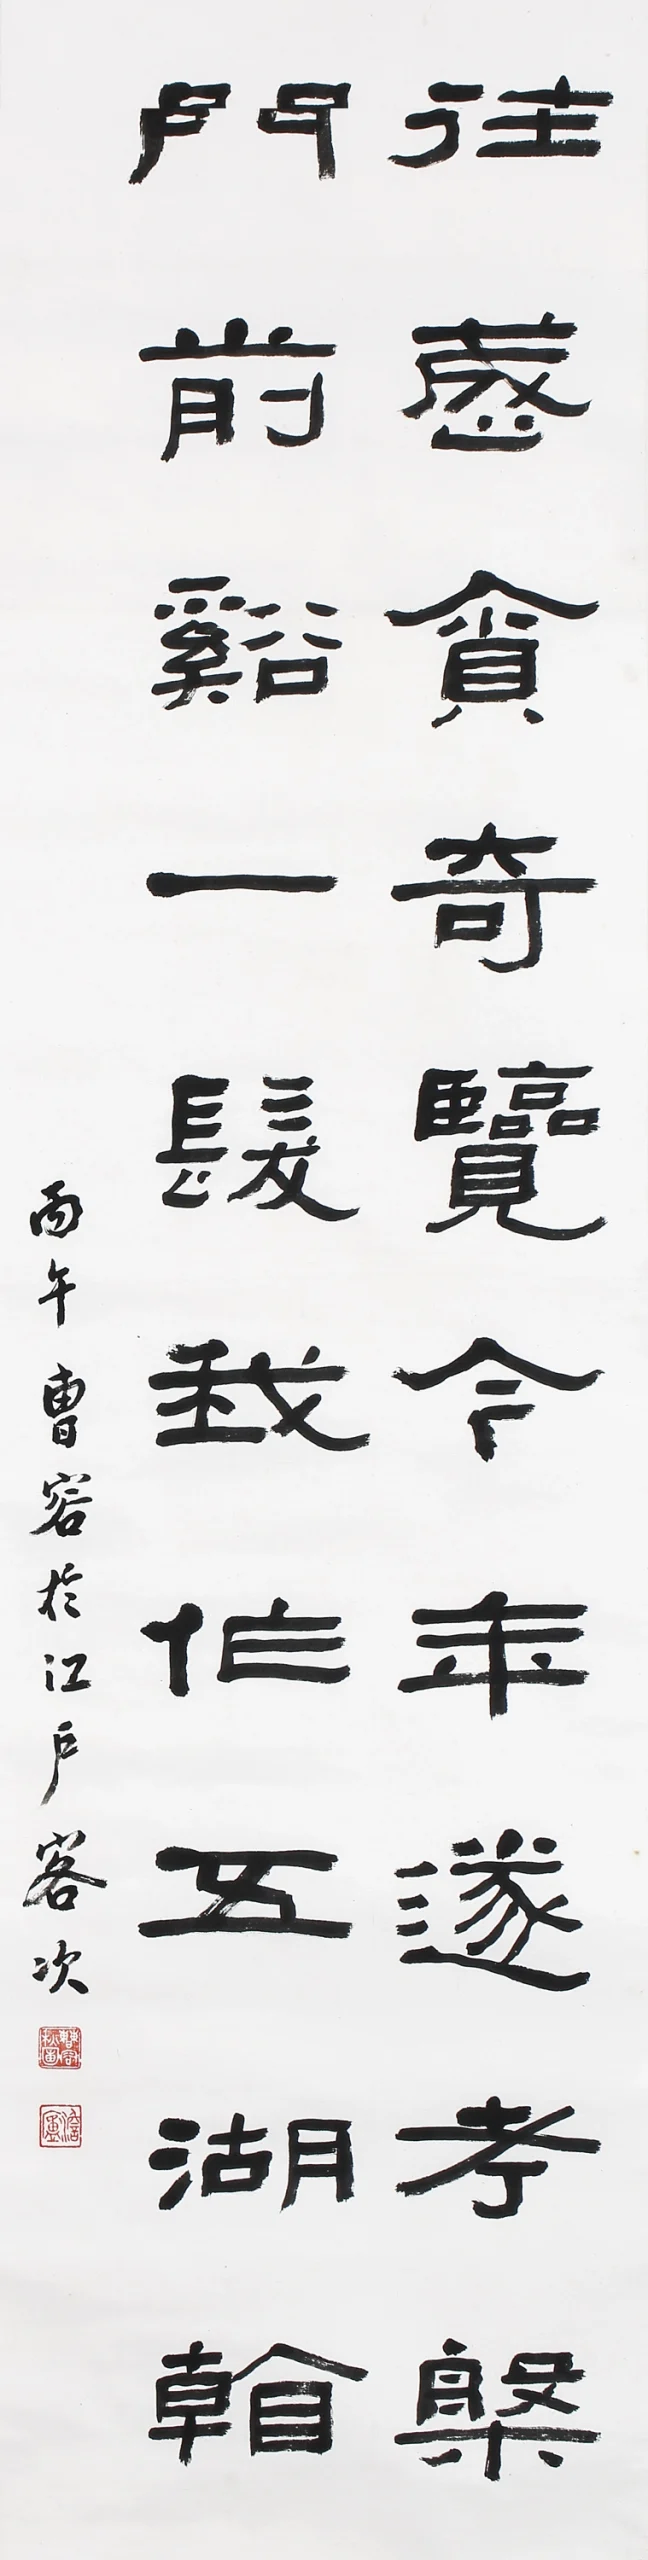 往歲貪奇覽今年遂考槃
門前谿一髮我作五湖看
丙午曹容於江戶客次
曹容秋圃
澹廬